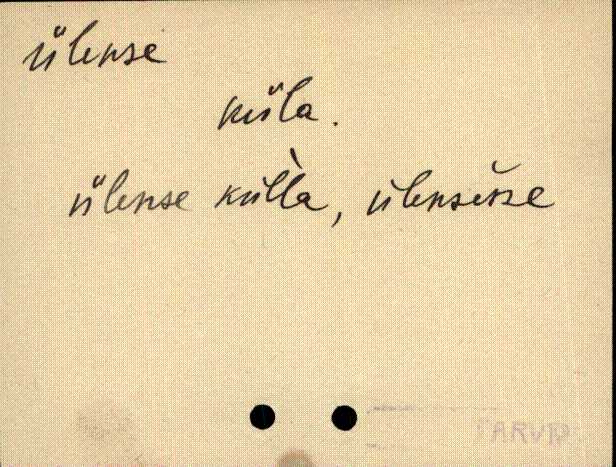 ülense
küla.
ülense kül̀la, ülensĕsse
TARVP